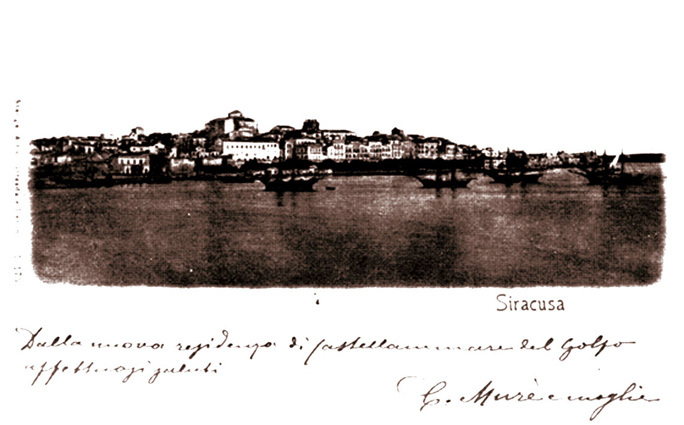 Siracusa
Dalla nuova residenza di Castellammare del Golfo
affettuosi saluti
G. Murè e moglie